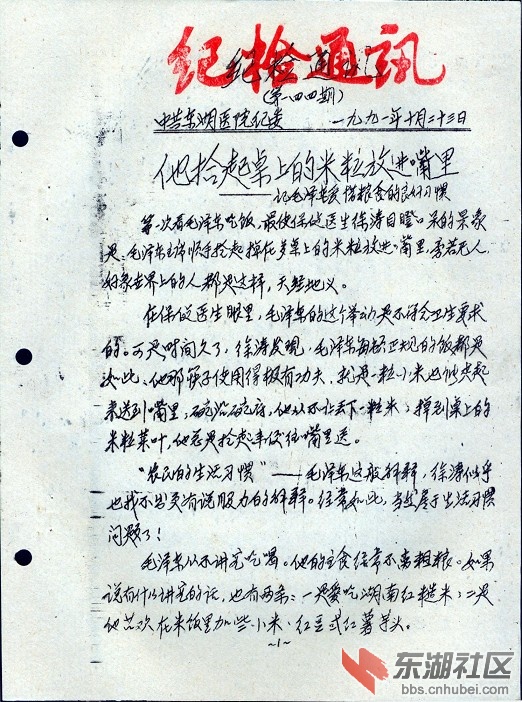 纪检通讯
纪检通讯
(第一四四期)
中共东湖医院纪委 一九九一年十月二十三日
他拾起桌上的米粒放进嘴里
——记毛泽东爱惜粮食的良好习惯
第一次看毛泽东吃饭，最使保健医生徐涛目瞪口呆的景象
是：毛泽东主席顺手拾起掉在桌上的米粒放进嘴里，旁若无人，
好象世界上的人都是这样，天经地义。
在保健医生眼里，毛泽东的这个举动是不符合卫生要求
的。可是时间久了，徐涛发现，毛泽东每每正规的饭都是
如此，他那筷子使用得极有功夫，就是一粒小米也能夹起
来送到嘴里，碗沿碗底，他从不让丢下一粒米；掉到桌上的
米粒菜叶，他总是拾起来仅往嘴里送。
“农民的生活习惯”——毛泽东这般解释，徐涛似乎
也找不出更有说服力的解释。经常如此，当然属于生活习惯
问题了！
毛泽东从不讲究吃喝。他的主食经常不离粗粮。如果
说有什么讲究的话，也有两条：一是爱吃湖南红糙米；二是
他喜欢在米饭里加些小米、红豆或红薯芋头。
~1~
东湖社区
bbs.cnhubei.com